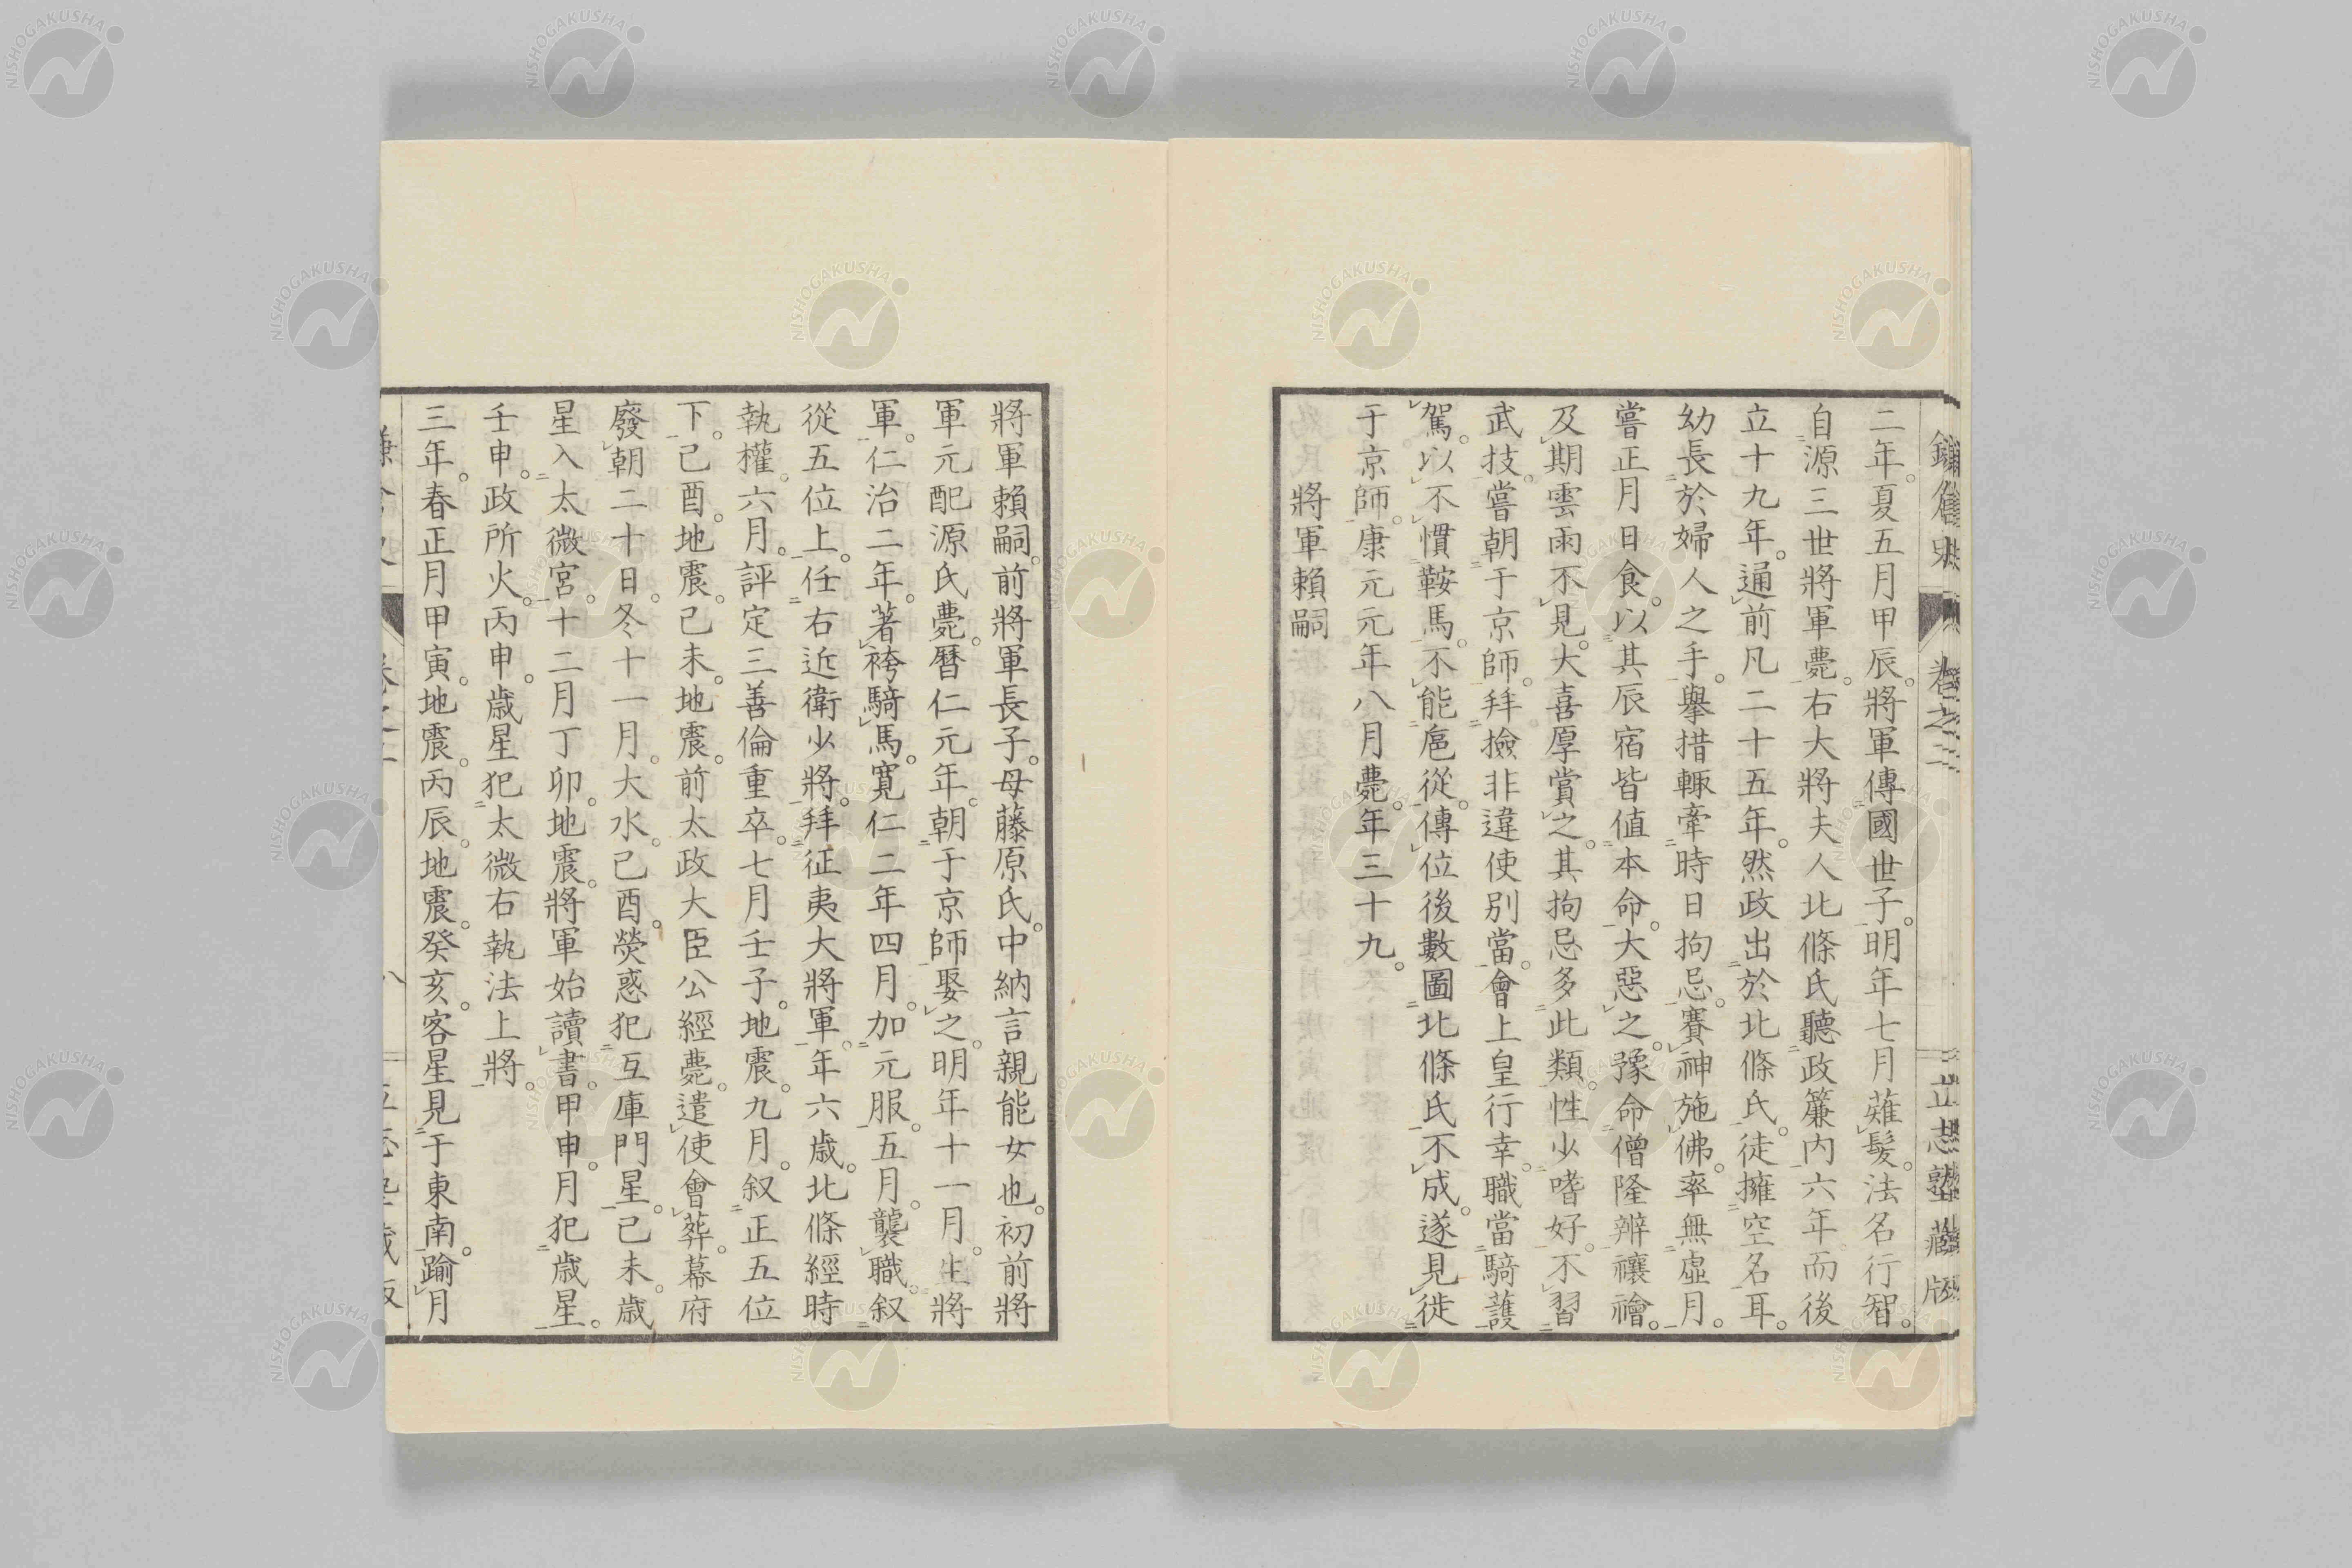 二年。夏五月甲辰。將軍傳國世子。明年七月薙髮。法名行智。
自源三世將軍薨。右大將夫人北條氏聽政簾内六年。而後
立十九年。通前凡二十五年。然政出於北條氏。徒擁空名耳。
幼長於婦人之手。擧措輙牽時日拘忌。賽神施佛。率無虛月。
嘗正月日食。以其辰宿皆値本命。大惡之。豫命僧隆辨禳禬。
及期雲雨不見。大喜厚賞之。其拘忌多此類。性少嗜好。不習
武技。嘗朝于京師。拜撿非違使別當。會上皇行幸。職當騎護
駕。以不慣鞍馬。不能扈從。傳位後數圖北條氏不成。遂見徙
于京師。康元元年八月薨。年三十九。
將軍賴嗣
將軍賴嗣。前將軍長子。母藤原氏。中納言親能女也。初前將
軍元配源氏薨。曆仁元年。朝于京師娶之。明年十一月。生將
軍。仁治二年。著袴騎馬。寛仁二年四月。加元服。五月。襲職。叙
從五位上。任右近衛少將。拜征夷大將軍。年六歳。北條經時
執權。六月。評定三善倫重卒。七月壬子。地震。九月。叙正五位
下。己酉。地震。己未。地震。前太政大臣公經薨。遣使會葬。幕府
廢朝二十日。冬十一月。大水。己酉。熒惑犯互庫門星。己未。歳
星入太微宮。十二月丁卯。地震。將軍始讀書。甲申。月犯歳星。
壬申。政所火。丙申。歳星犯太微右執法上將。
三年。春正月甲寅。地震。丙辰。地震。癸亥。客星見于東南。踰月
鎌倉史
卷之二
立志塾藏版
NISHOGAKUSHA